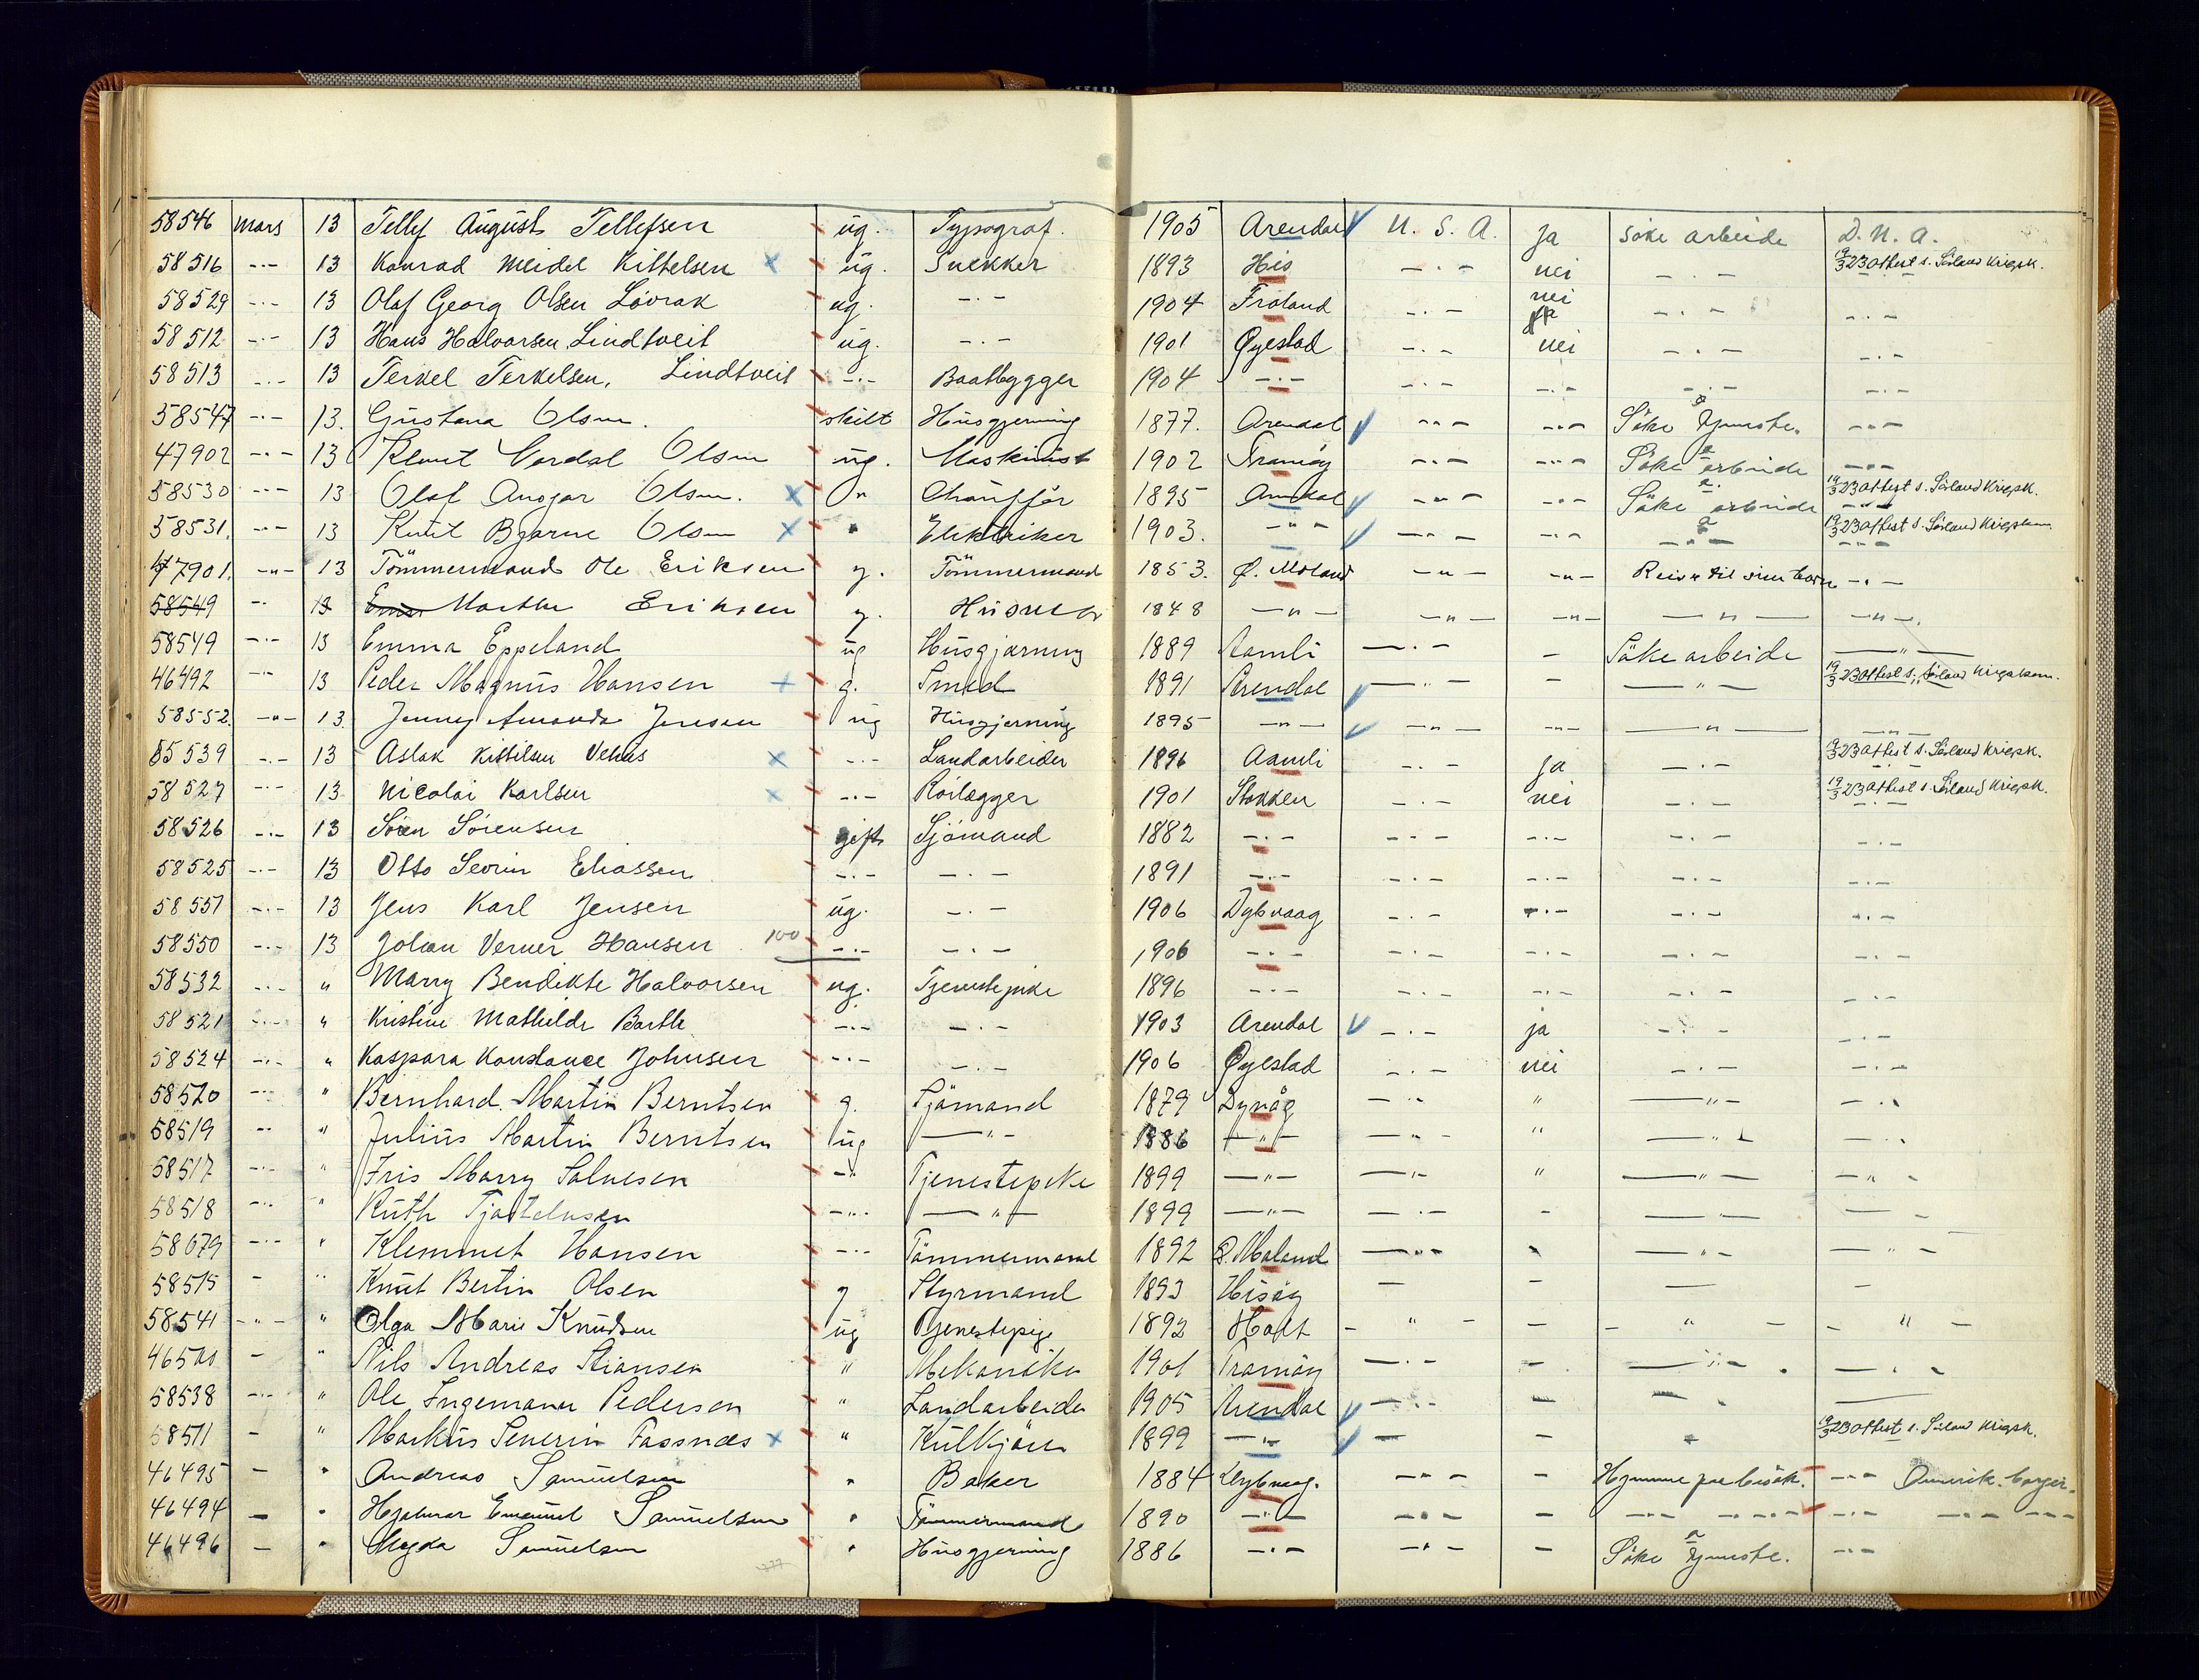 58546 Mars 13 Tellef August Tellefsen ug. Typograf. 1905 Arendal U. S. A. Ja Söke arbeide D. N. A.
58516 -·- 13 Konrad Meidel Kittelsen x ug. Snekker 1893 His -·- nei - - 19/3 23 Attest s. Sörland Krigsk.
58529 -·- 13 Olaf Georg Olsen Lövrak ug. -·- 1904 Froland -·- nei -·- -·-
58512 -·- 13 Hans Halvorsen Lindtveit ug. -·- 1901 Øyestad -·- nei -·- -·-
58513 -·- 13 Terkel Terkelsen, Lindtveit -·- Baatbygger 1904 -·- -·- -·- -·- -·-
58547 -·- 13. Gustava Olsen. skilt Husgjerning 1877. Arendal -·- -·- Söke tjeneste. -·-
47902 -·- 13 Klemet Verdal Olsen ug. Maskinist 1902 Tromöy -·- -·- Söke arbeide -·-
58530 -·- 13 Olaf Ansgar Olsen. x " Chaufför 1895 Arendal -·- -·- Söke arbeide 19/3 23 Attest s. Sörland Krigsk.
58531. -·- 13 Knut Bjarne Olsen x " Elektriker 1903. -"- -·- -·- -"- 19/3 23 Attest s. Sörland Krigskom
47901. -"- 13 Tömmermand Ole Eriksen g. Tömmermand 1853. Ø. Moland -"- -"- Reise til sine barn -·-
58549 -·- 13 Marthe Eriksen g. Husmor 1848 -"- -"- -"- -"- -"-.
58549 -·- 13 Emma Eppeland ug Husgjerning 1889 Aamli -·- - Söke arbeide -"-
46492 -·- 13 Peder Magnus Hansen + g. Smed 1891 Arendal -"- - -"- 19/3 23 Attest s. Sörland Krigskom.
58552. -"- 13. Jenny Amanda Jensen ug Husgjerning 1895 -"- -"- -"- -"- -"-
55539 -·- 13 Aslak Kittilsen Vehus x -·- Landarbeider 1896 Aamli -·- Ja -·- 19/3 23 Attest s. Sörland Krigsk.
58527 -·- 13 Nicolai Karlsen x -·- Rörlægger 1901 Stokken -·- nei -·- 19/3 23 Attest s. Sörland Krigsk.
58526 -·- 13 Sören Sörensen gift Sjömand 1882 -·- -·- -·- -·- -·-
58525 -·- 13 Otto Severin Eliassen -·- -·- 1891 -·- -·- -·- -·- -·-
58557 -·- 13 Jens Karl Jensen ug. -·- 1906 Dybvaag -·- -·- -·- -·-
58550 -·- 13 Johan Verner Hansen 100 -·- -·- 1906 -·- -·- -·- -·- -·-
58532 -·- " Marry Bendikte Halvorsen ug. Tjenestepike 1896 -·- -·- -·- -·- -·-
58521 -·- " Kristine Mathilde Barth -·- -·- 1903 Arendal -·- ja -·- -·-
58524 -·- " Kaspara Konstance Johnsen -·- -·- 1906 Øyestad -·- nei -·- -·-
58520 -·- " Bernhard Martin Berntsen g. Sjömand 1879 Dyvåg -·- " -"- -·-
58519 -·- " Julius Martin Berntsen ug -"- 1886 -"- -"- " -"- -·-
58517 -·- " Iris Marry Salvesen -"- Tjenestepike 1899 -"- -"- " -"- -"-
58518 -·- " Ruth -"- -"- 1899 -"- -·- - -"- - -
58679 -·- " Klemmet Hansen -·- Tömmermand 1892 Ø. Moland -·- - -"- -"-
58515 - " Knut Bertin Olsen g Styrmand 1893 Hisöy - - - -
58541 -"- " Olga Marie Knudsen ug Tjenestepige 1892 Holt - " - - - " - - " -
46500 - " Nils Andreas Stiansen " Mekaniker 1901 Tromöy -·- - -"- -·-
58538 -·- " Ole Ingemann Pedersen " Landarbeider 1905 Arendal -·- - - -
58511 - " Markus Severin Fassnæs x " Kulkjörer 1899 -"- - - - 19/3 23 Attest s. Sörland Krigsk.
46495 - " Andreas Samuelsen " Baker 1884 Dybvaag. -·- - Hjemme paa besök. -·- Amerik. borger.
46494 - " Hjalmar Emanuel Samuelsen " Tömmermand 1890 -·- -·- - -·- -·- -·- -·- -·-
46496 - " Magda Samuelsen " Husgjerning 1886 -·- -·- - Söke tjeneste. -·-